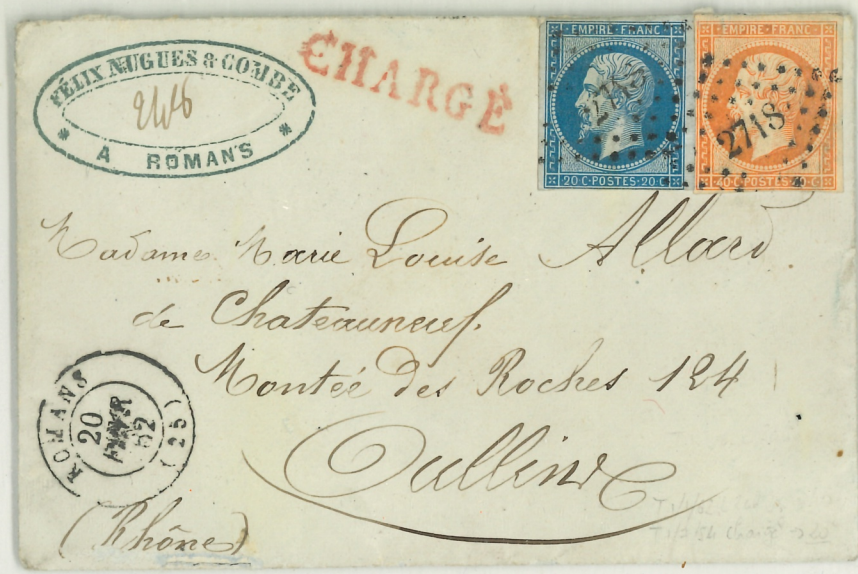 FÉLIX NUGUES & COMBE
A ROMANS
CHARGÉ
EMPIRE FRANC
2718
20 C·POSTES·20 C
EMPIRE FRANC
2718
40 C·POSTES·40 C
Madame Marie Louise Allard
de Chateauneuf.
Montée des Roches 124
Oullins
(Rhône)
ROMANS
20
62
(25)